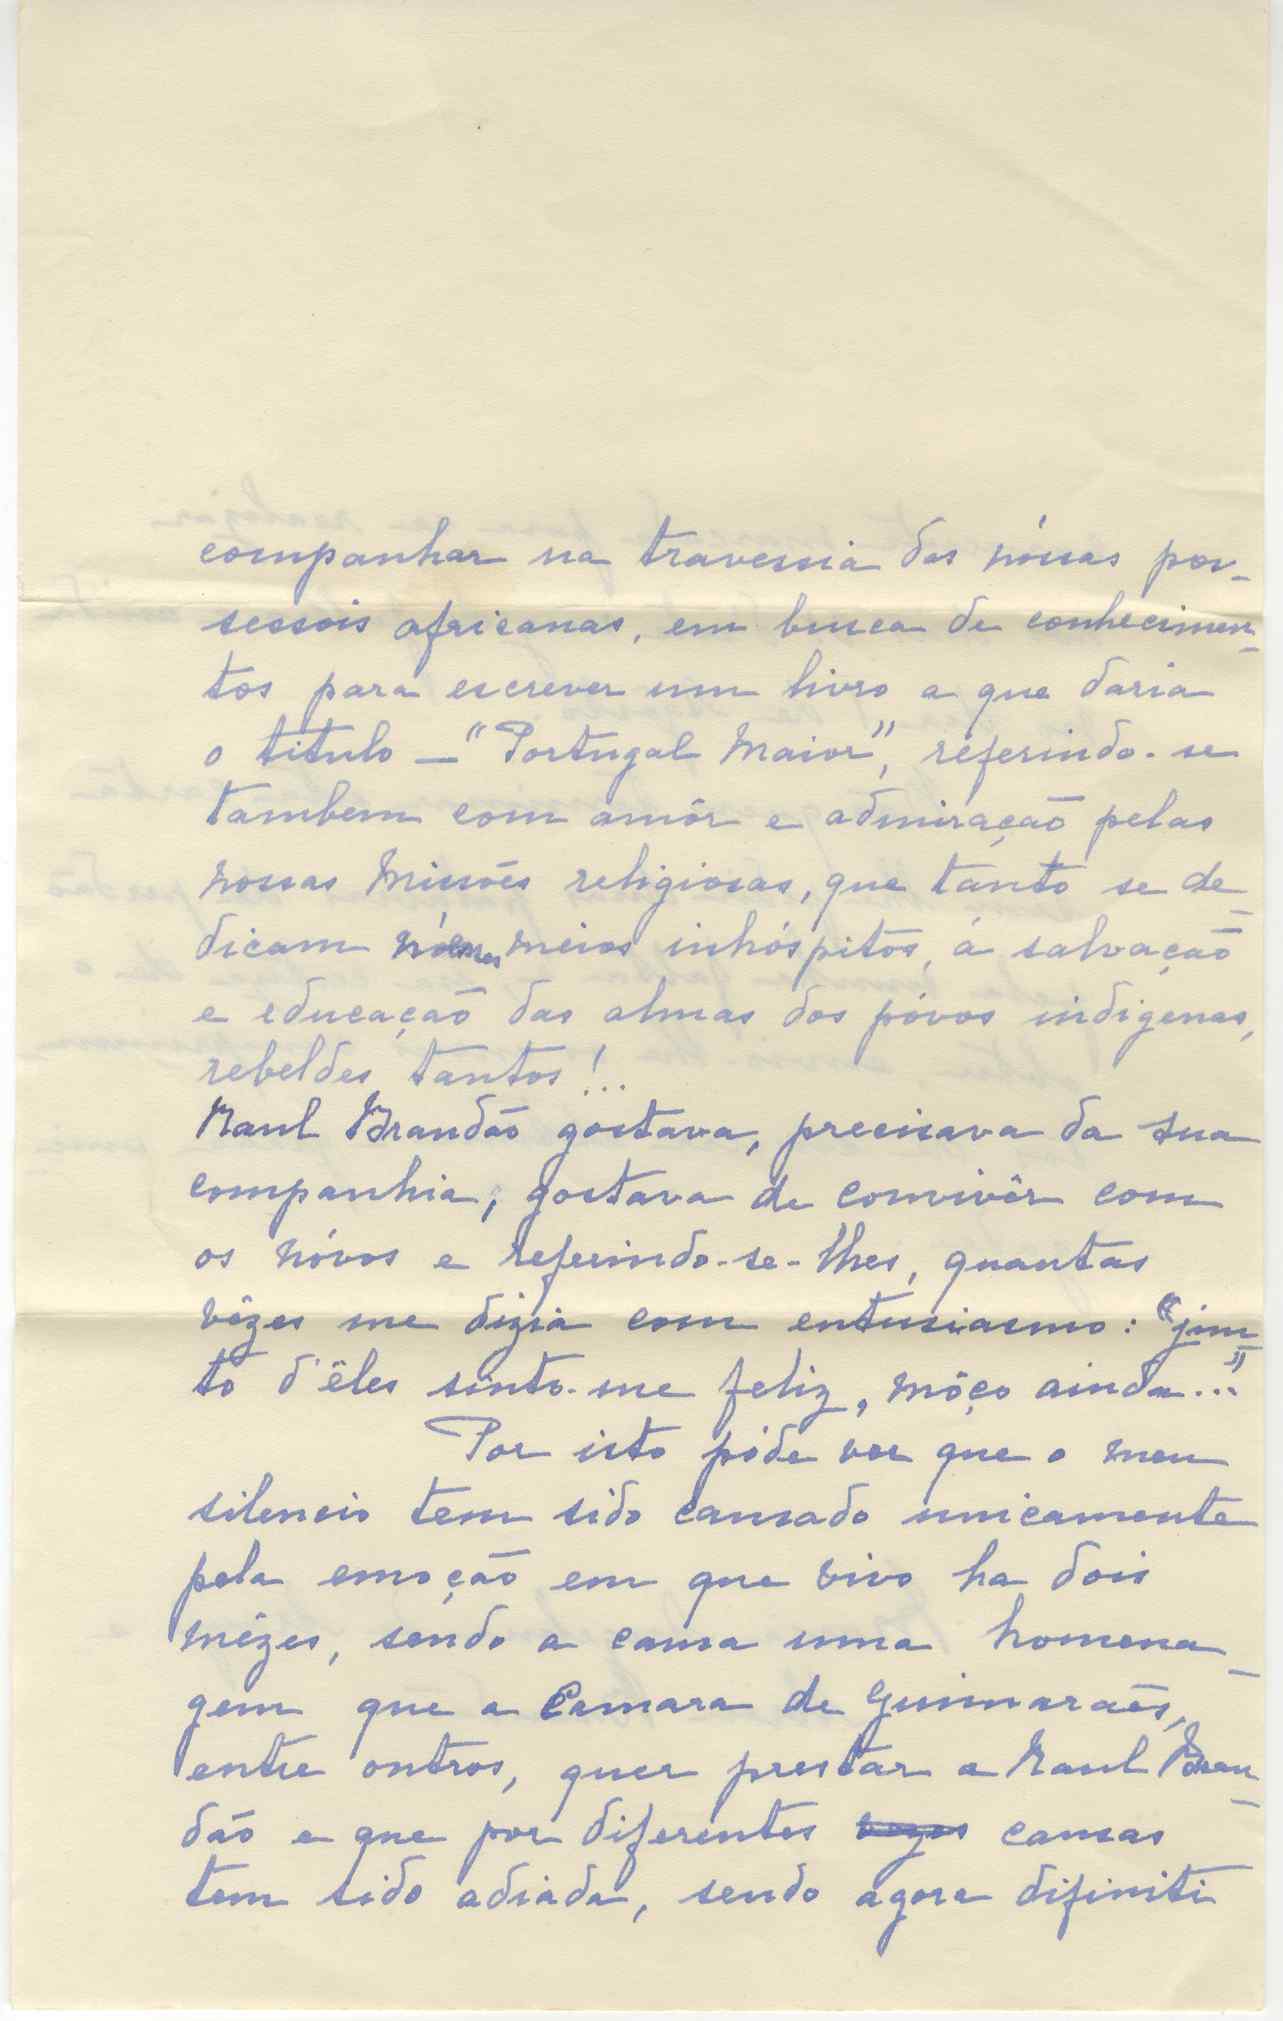 companhar na travessia das nóssas pos-
sessois africanas, em busca de conhecimen-
tos para escrever um livro a que daria
o titulo — "Portugal Maior", referindo-se
tambem com amôr e admiração pelas
nossas Missões religiosas, que tanto se de-
dicam meios inhóspitos, á salvação
e educação das almas dos póvos indigenas,
rebeldes tantos!..
Raul Brandão gostava, precisava da sua
companhia, gostava de convivêr com
os nóvos e referindo-se-lhes, quantas
vêzes me dizia com entusiasmo: "jun-
to d'êles sinto-me feliz, môço ainda..."
Por isto póde ver que o meu
silencio tem sido causado unicamente
pela emoção em que vivo ha dois
mêzes, sendo a causa uma homena-
gem que a Camara de Guimarães,
entre outros, quer prestar a Raul Bran-
dão e que por diferentes vezes causas
tem sido adiada, sendo agora difiniti